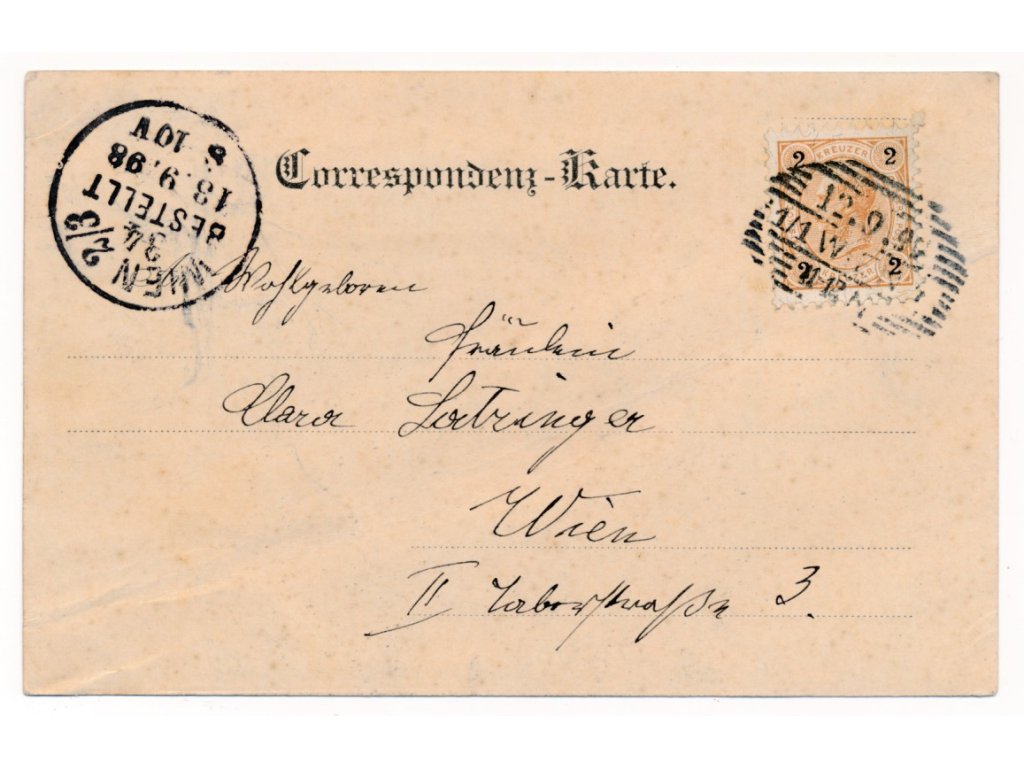 Correspondenz-Karte.
WIEN 2/3
34
BESTELLT
13.9.98
8. 10V
2 KREUZER 2
2 2
12.9.98
1/1 W
Wohlgeboren
Fräulein
Clara Satzinger
Wien
II Taborstraße 3.